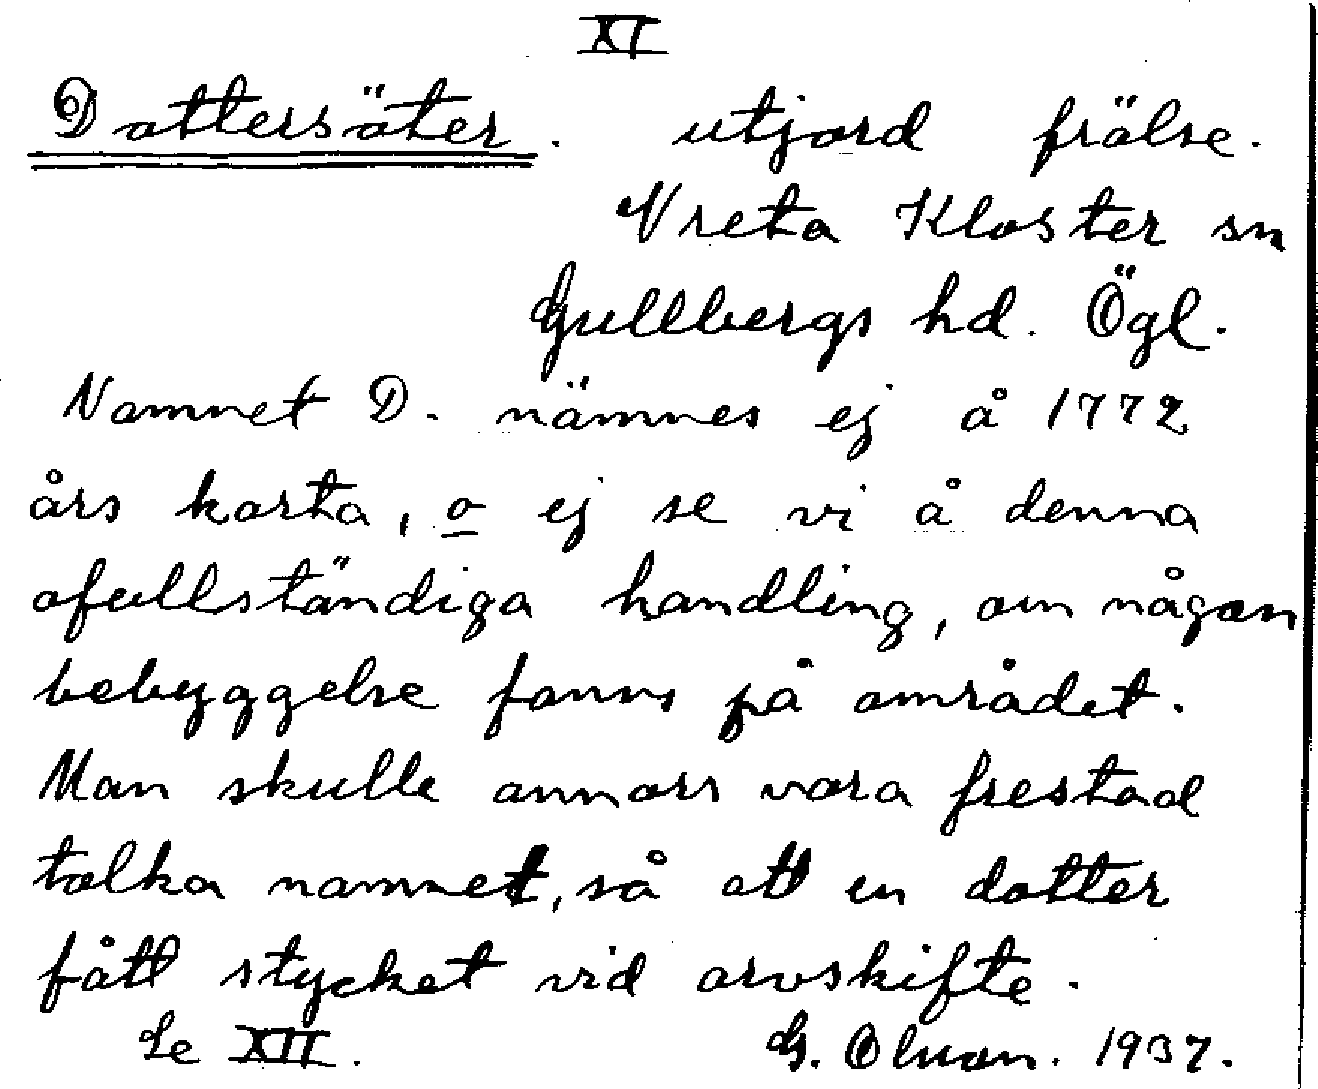 XI
Dottersäter. utjord frälse.
Vreta Kloster sn
Gullbergs hd. Ögl.
Namnet D. nämnes ej å 1772
års karta, o ej se vi å denna
ofullständiga handling, om någon
bebyggelse fanns på området.
Man skulle annars vara frestad
tolka namnet, så att en dotter
fått stycket vid arvskifte.
Se XII. G. Olsson. 1937.